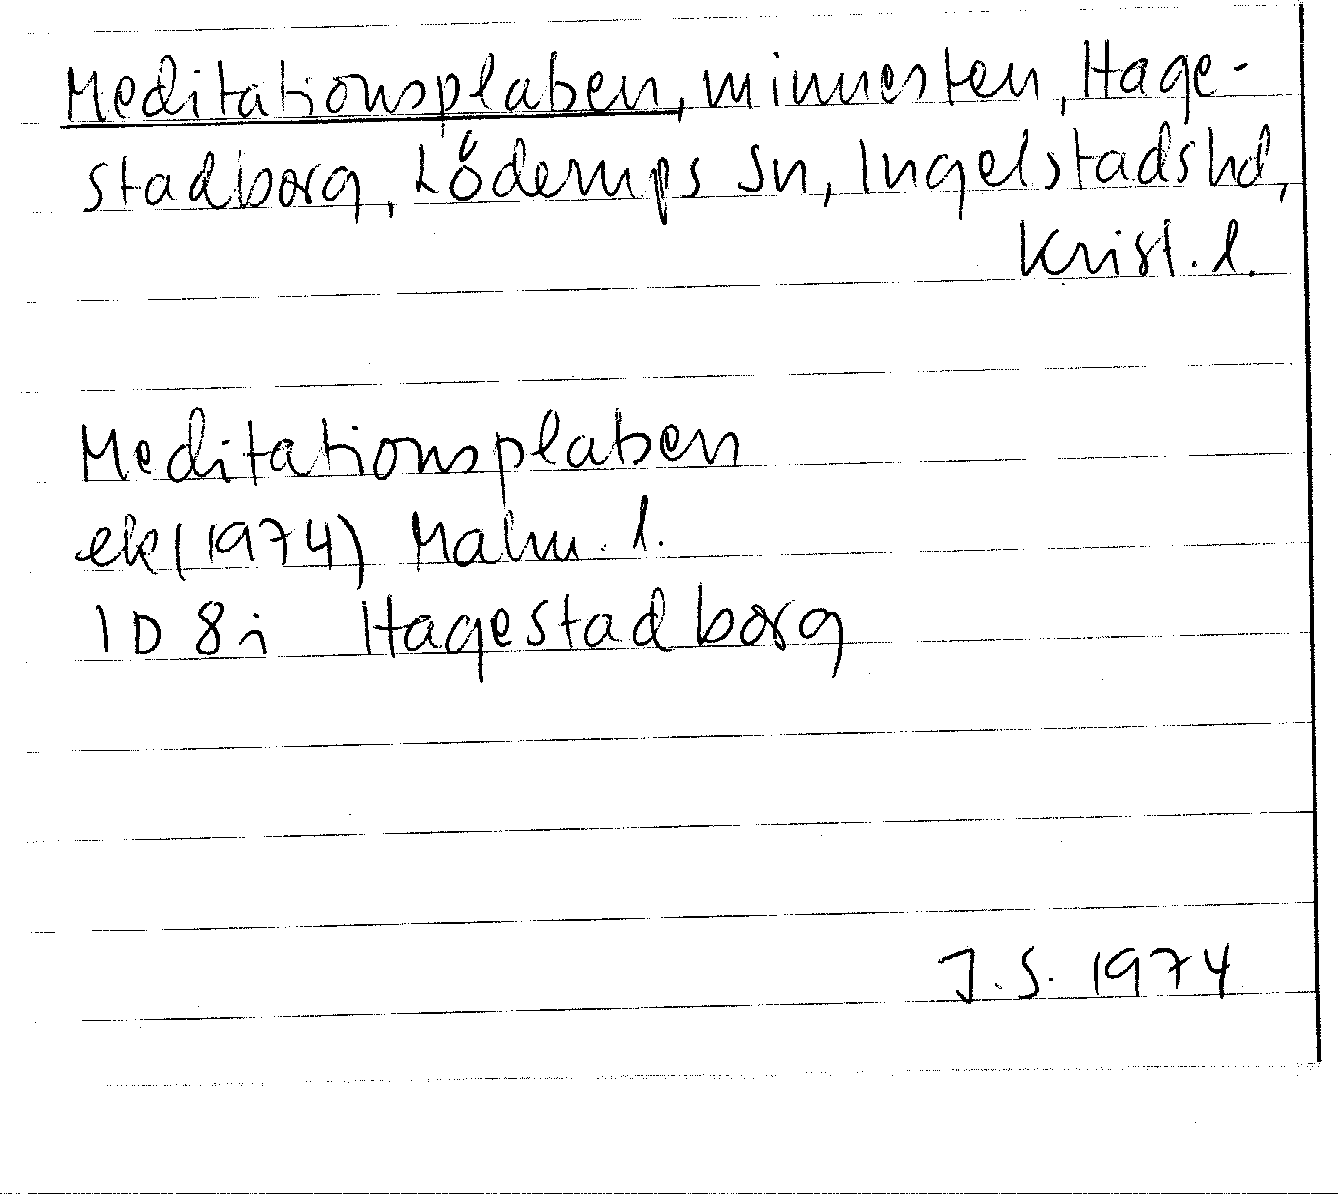 Meditationsplatsen, minnesten, Hage-
stadborg, Löderups sn, Ingelstads hd,
Krist. l.
Meditationsplatsen
ek (1974) Malm. l.
1D 8i Hagestadborg
J.S. 1974